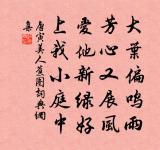 大葉偏鳴雨
芳心又展風
愛他新綠好
上我小庭中
唐寅美人蕉圖詞典網
集